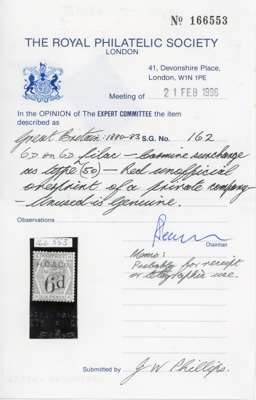 No 166553
THE ROYAL PHILATELIC SOCIETY
LONDON
41, Devonshire Place,
London, W1N 1PE
Meeting of 21 FEB 1996
In the OPINION of The EXPERT COMMITTEE the item
described as
Great Britain: 1880-83 S.G. No. 162
6D on 6D lilac — Carmine surcharge
as type (50) — Red unofficial
overprint of a private company —
— Unused is genuine.
Observations
Chairman
Memo:
Probably for receipt
or telegraphic use.
166 553
6d
Submitted by J W Phillips.